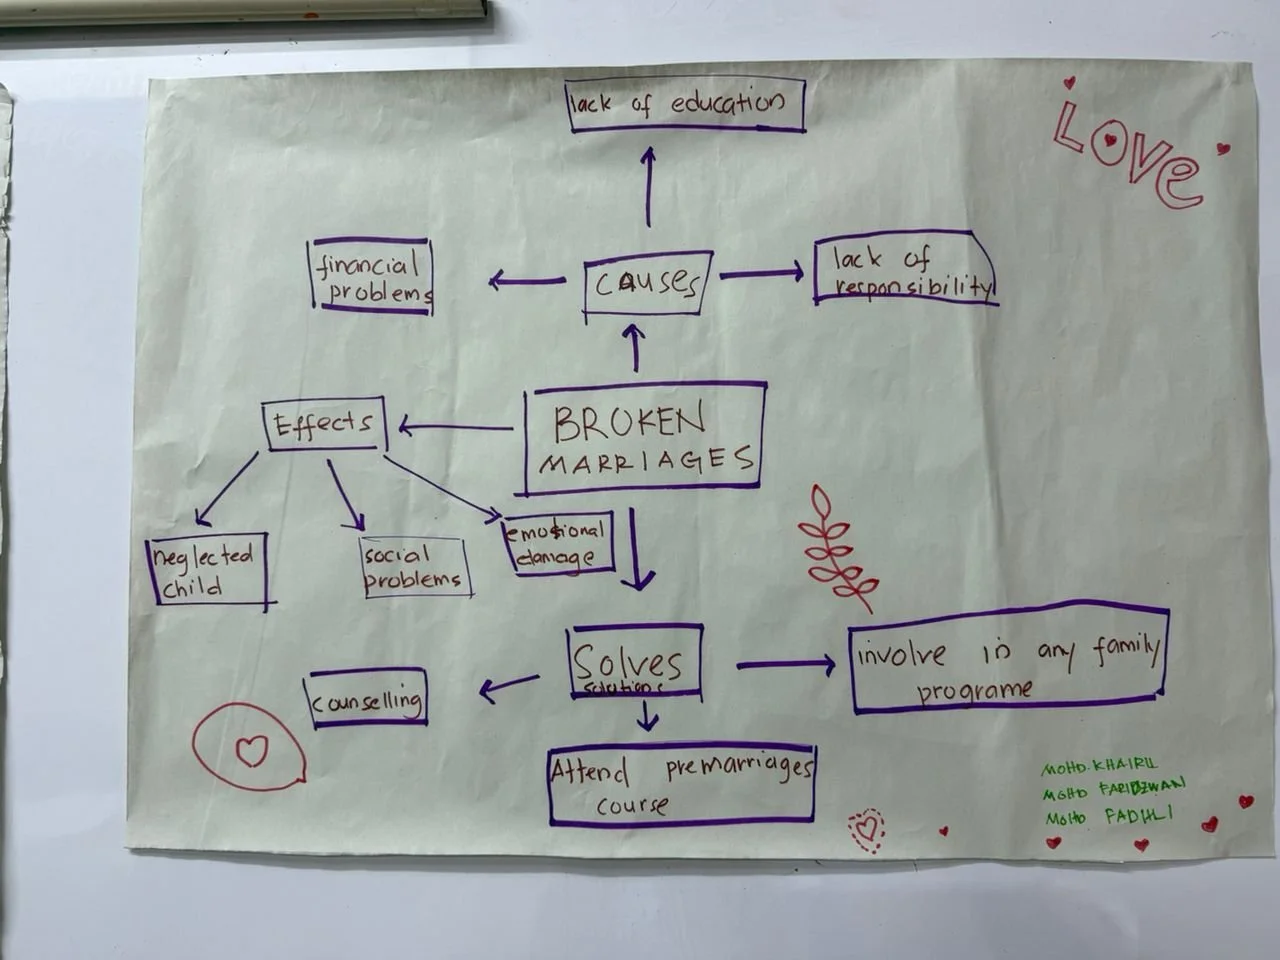 lack of education
LOVE
financial
problems
causes
lack of
responsibility
Effects
BROKEN
MARRIAGES
neglected
child
social
problems
emotional
damage
Solves
solutions
counselling
involve in any family
programe
Attend premarriages
course
MOHD. KHAIRIL
MOHD FARIDZWAN
MOHD FADHLI